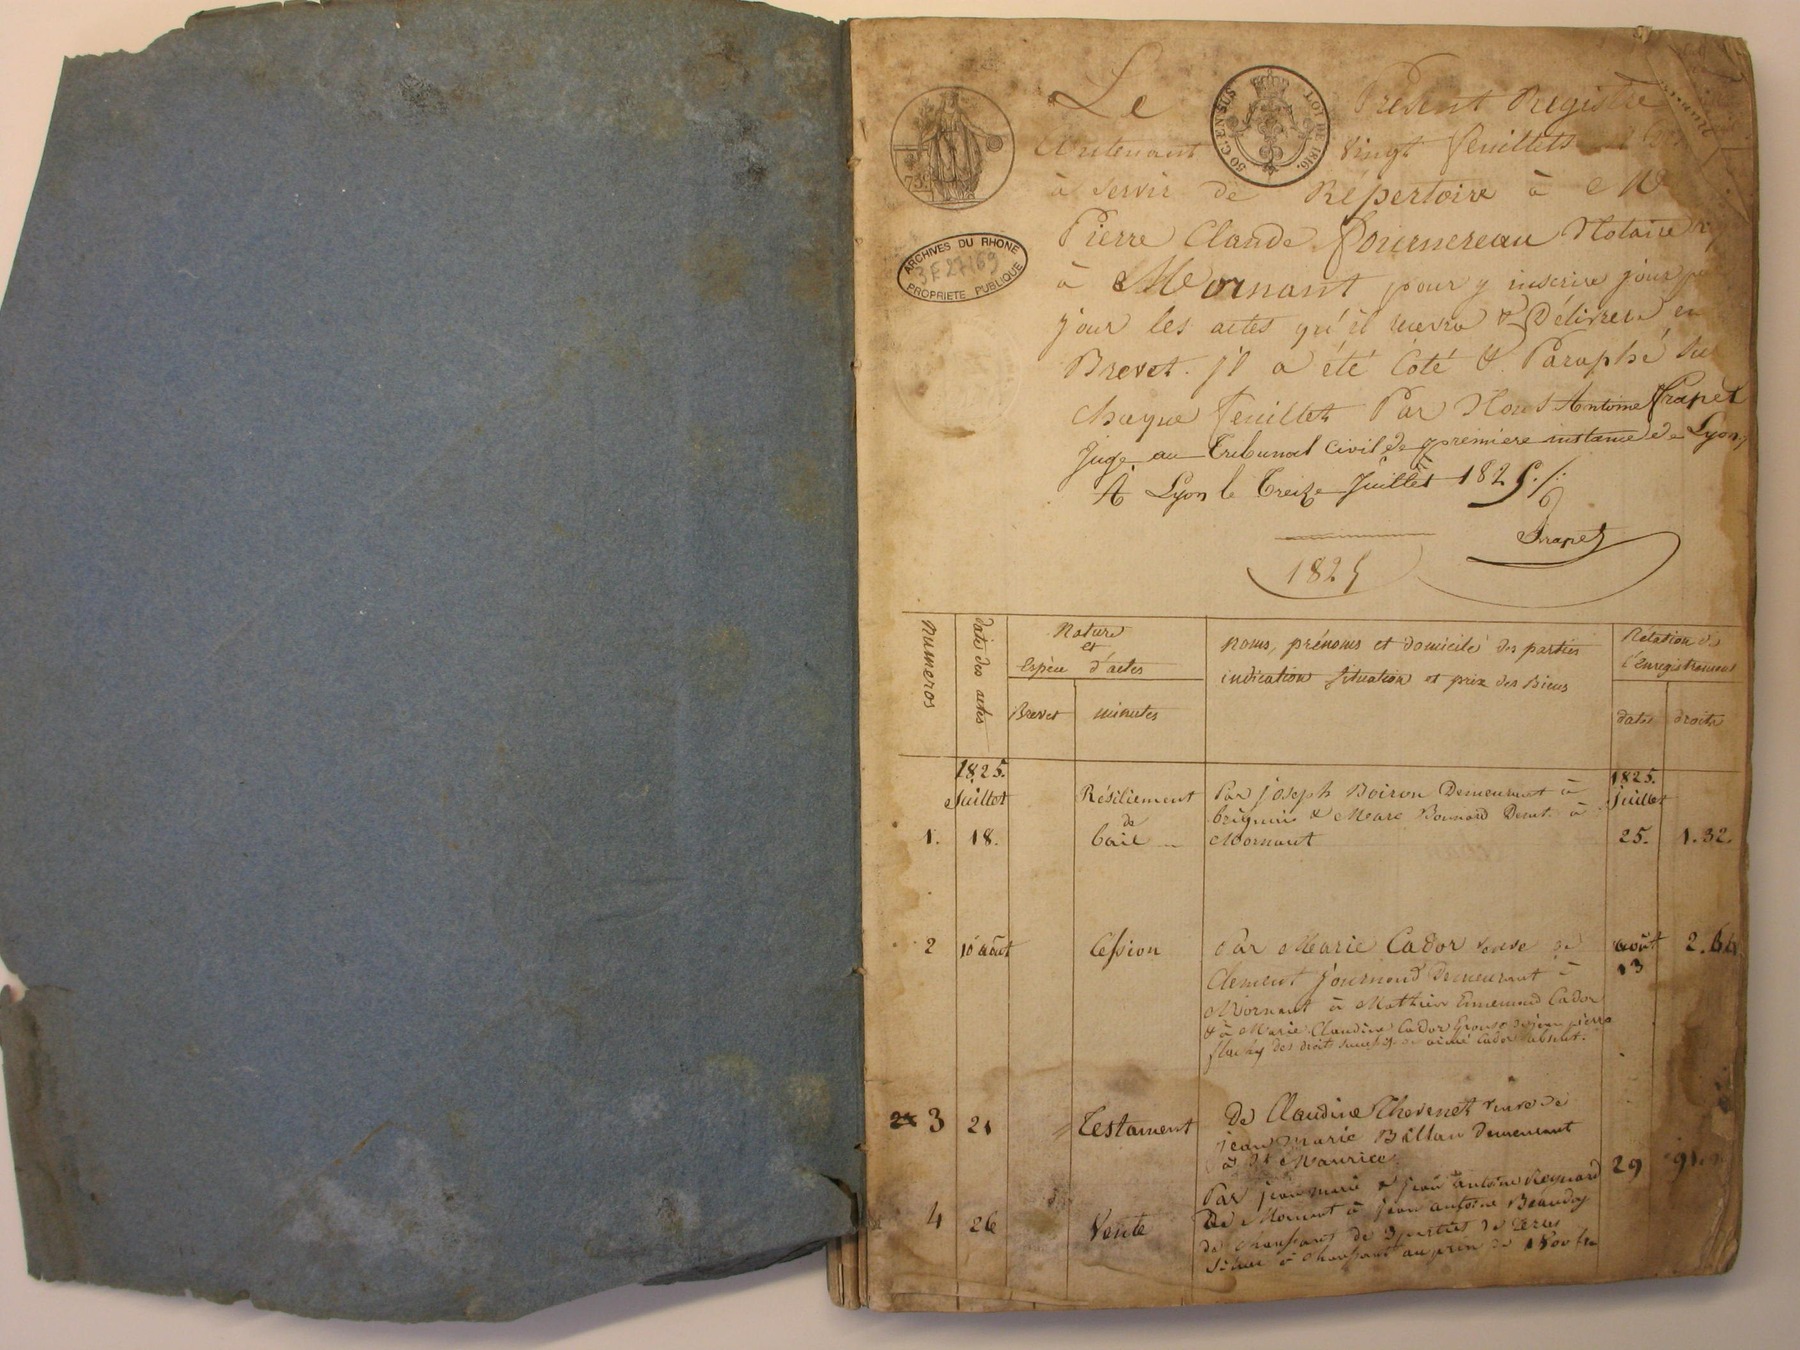 Le Présent Régistre
Contenant Vingt feuillets
à servir de Répertoire à
Pierre Claude Fournereau Notaire
à Mornant pour y inscrire jour
jour les actes qu'il recevra & Délivrera en
Brevet. il a été Coté & Paraphé sur
chaque feuillet Par Nous Antoine Frapet
Juge au Tribunal Civil de premiere instance de Lyon,
A Lyon le Treize Juillet 1825 ./:
Frapet
1825
75 c
50 C. EN SUS
LOI DE 1816.
ARCHIVES DU RHONE
3 E 27169
PROPRIETE PUBLIQUE
Numeros
date des actes
Nature et Espèce d'actes
Brevet
minutes
noms, prénoms et domicile des parties
indication situation et prix des Biens
Rélation de l'enregistrement
dates
droits
1825. 1825.
Juillet Résiliement Par joseph Boiron Demeurant à juillet
de & Marc Bonnard Demt. à
1. 18. bail Mornant 25. 1.32.
2 10 août Cession Par Marie Cador veuve de août 2.
Clement journoud Demeurant à 13
Mornant à Mathieu Ennemond Cador
& à Marie Claudine Cador Epouse de jean pierre
flachy des droits Cador absent.
3 21 Testament De Claudine Thevenet veuve de
jean marie Billau Demeurant
à St Maurice 29
4 26 Vente Par jean marie & jean antoine
De Mornant à jean antoine
de chaussant de 3 parties de Terres
située à chaussant au prix de